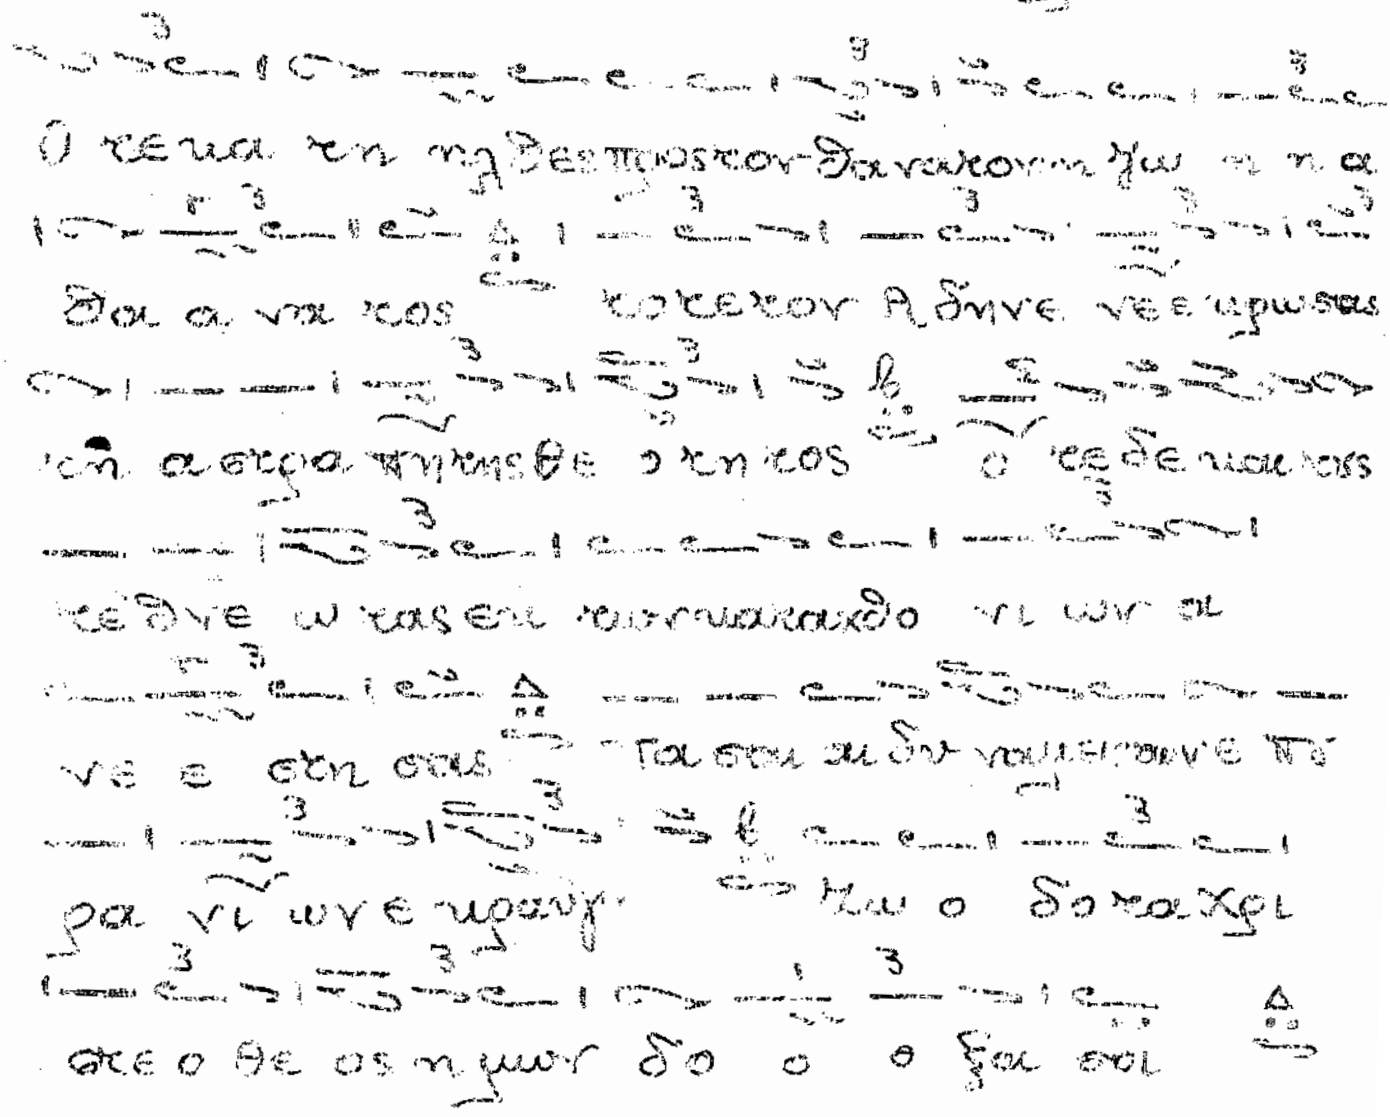 Ο τε κα τη ηλ θες προς τον θα να τον η ζω η η α
θα α να τος το τε τον Α δην ε νε ε κρω σας
τη α στρα πη της θε ο τη τος ο τε δε και τους
τε θνε ω τας εκ των κα τα χθο νι ων α
νε ε στη σας πα σαι αι δυ να μεις των ε που
ρα νι ων ε κραυγ ζω ο δο τα Χρι
στε ο θε ος η μων δο ο ο ξα σοι